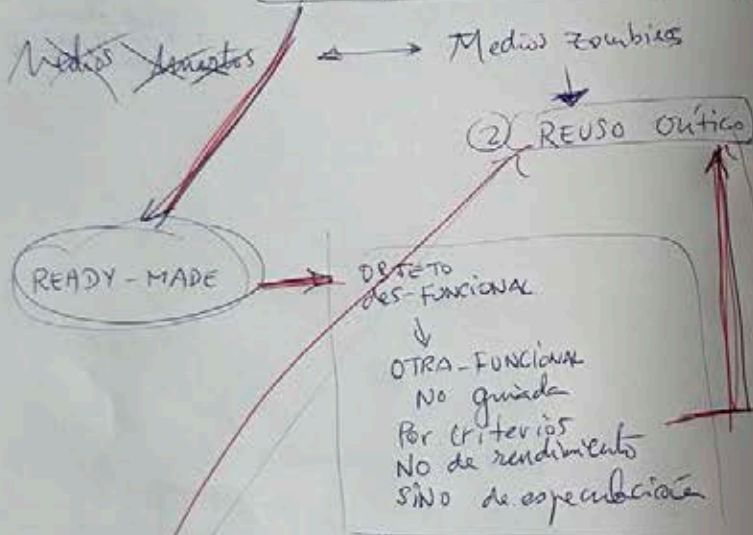 Medios Muertos
Medios zombies
② REUSO Crítico
READY-MADE
OBJETO
des-FUNCIONAL
OTRA-FUNCIONAL
No guiada
Por criterios
NO de rendimiento
SINO de especulación